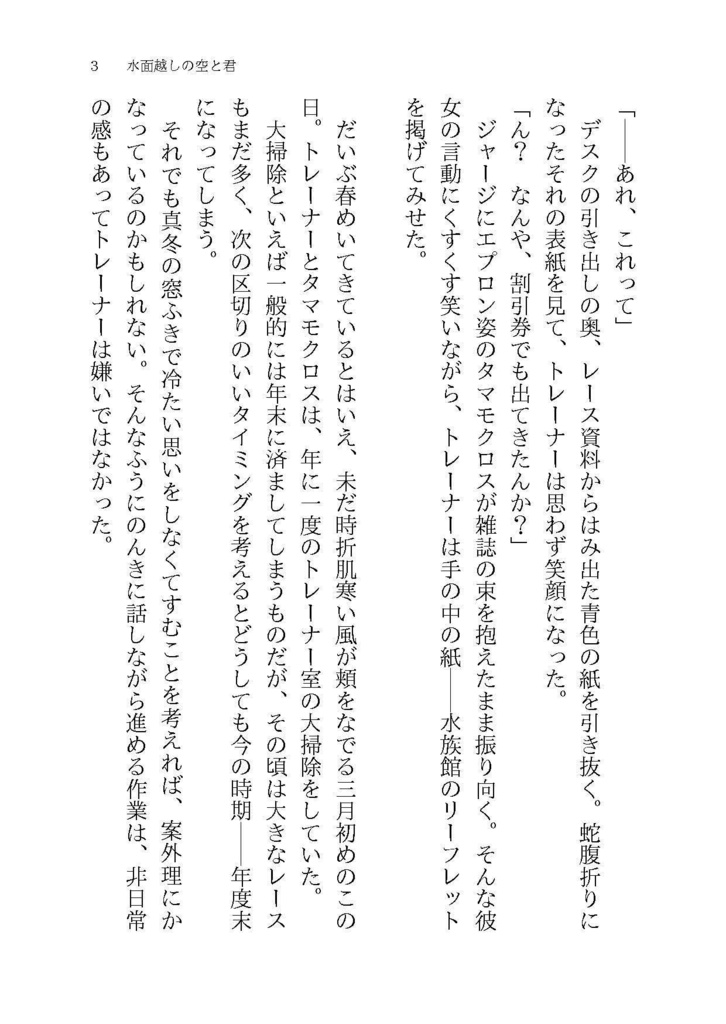 3　水面越しの空と君
「――あれ、これって」
　デスクの引き出しの奥、レース資料からはみ出た青色の紙を引き抜く。蛇腹折りに
なったそれの表紙を見て、トレーナーは思わず笑顔になった。
「ん？　なんや、割引券でも出てきたんか？」
　ジャージにエプロン姿のタマモクロスが雑誌の束を抱えたまま振り向く。そんな彼
女の言動にくすくす笑いながら、トレーナーは手の中の紙――水族館のリーフレット
を掲げてみせた。
　だいぶ春めいてきているとはいえ、未だ時折肌寒い風が頬をなでる三月初めのこの
日。トレーナーとタマモクロスは、年に一度のトレーナー室の大掃除をしていた。
　大掃除といえば一般的には年末に済ましてしまうものだが、その頃は大きなレース
もまだ多く、次の区切りのいいタイミングを考えるとどうしても今の時期――年度末
になってしまう。
　それでも真冬の窓ふきで冷たい思いをしなくてすむことを考えれば、案外理にか
なっているのかもしれない。そんなふうにのんきに話しながら進める作業は、非日常
の感もあってトレーナーは嫌いではなかった。